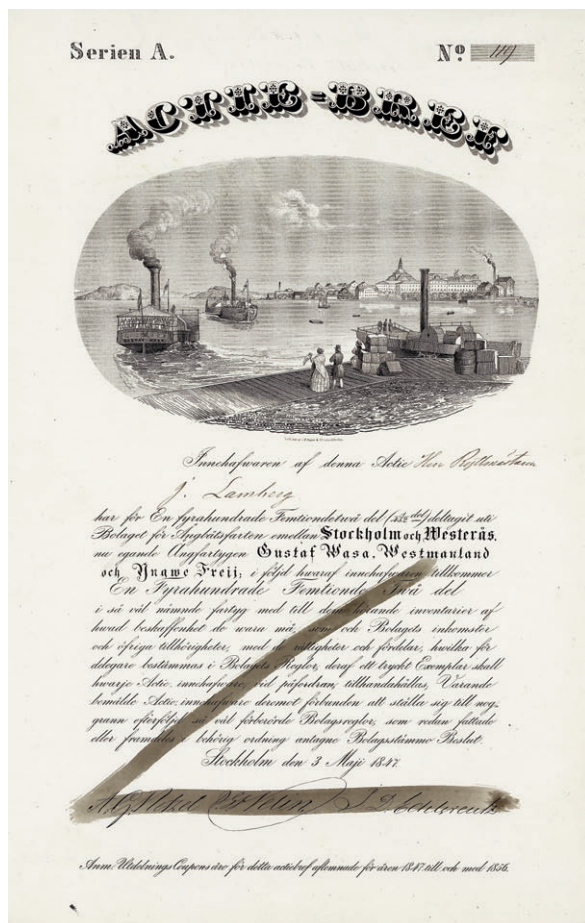 Serien A.
Nº 119
ACTIE=BREF
Innehafwaren af denna Actie Herr
J. Lamberg
har för En fyrahundrade Femtiondetvå del deltagit uti
Bolaget för Ångbåtsfarten emellan Stockholm och Westerås,
nu egande Ångfartygen Gustaf Wasa, Westmanland
och Yngwe Freij, i följd hwaraf innehafwaren tillkommer
En Fyrahundrade Femtionde Två del
i så väl nämnde fartyg med till dem hörande inventarier af
hwad beskaffenhet de wara må, som och Bolagets inkomster
och öfriga tillhörigheter, med de rättigheter och fördelar, hwilka för
delegare bestämmas i Bolagets Reglor, deraf ett tryckt Exemplar skall
hwarje Actie innehafware, vid påfordran, tillhandahållas, Varande
bemälde Actie innehafware deremot förbunden att ställa sig till nog-
grann efterföljd så väl förberörde Bolagsreglor, som redan fattade
eller framdeles i behörig ordning antagne Bolagsstämmo Beslut.
Stockholm den 3 Maji 1847.
Anm. Utdelnings Coupons äro för detta actiebref aflemnade för åren 1847 till och med 1856.